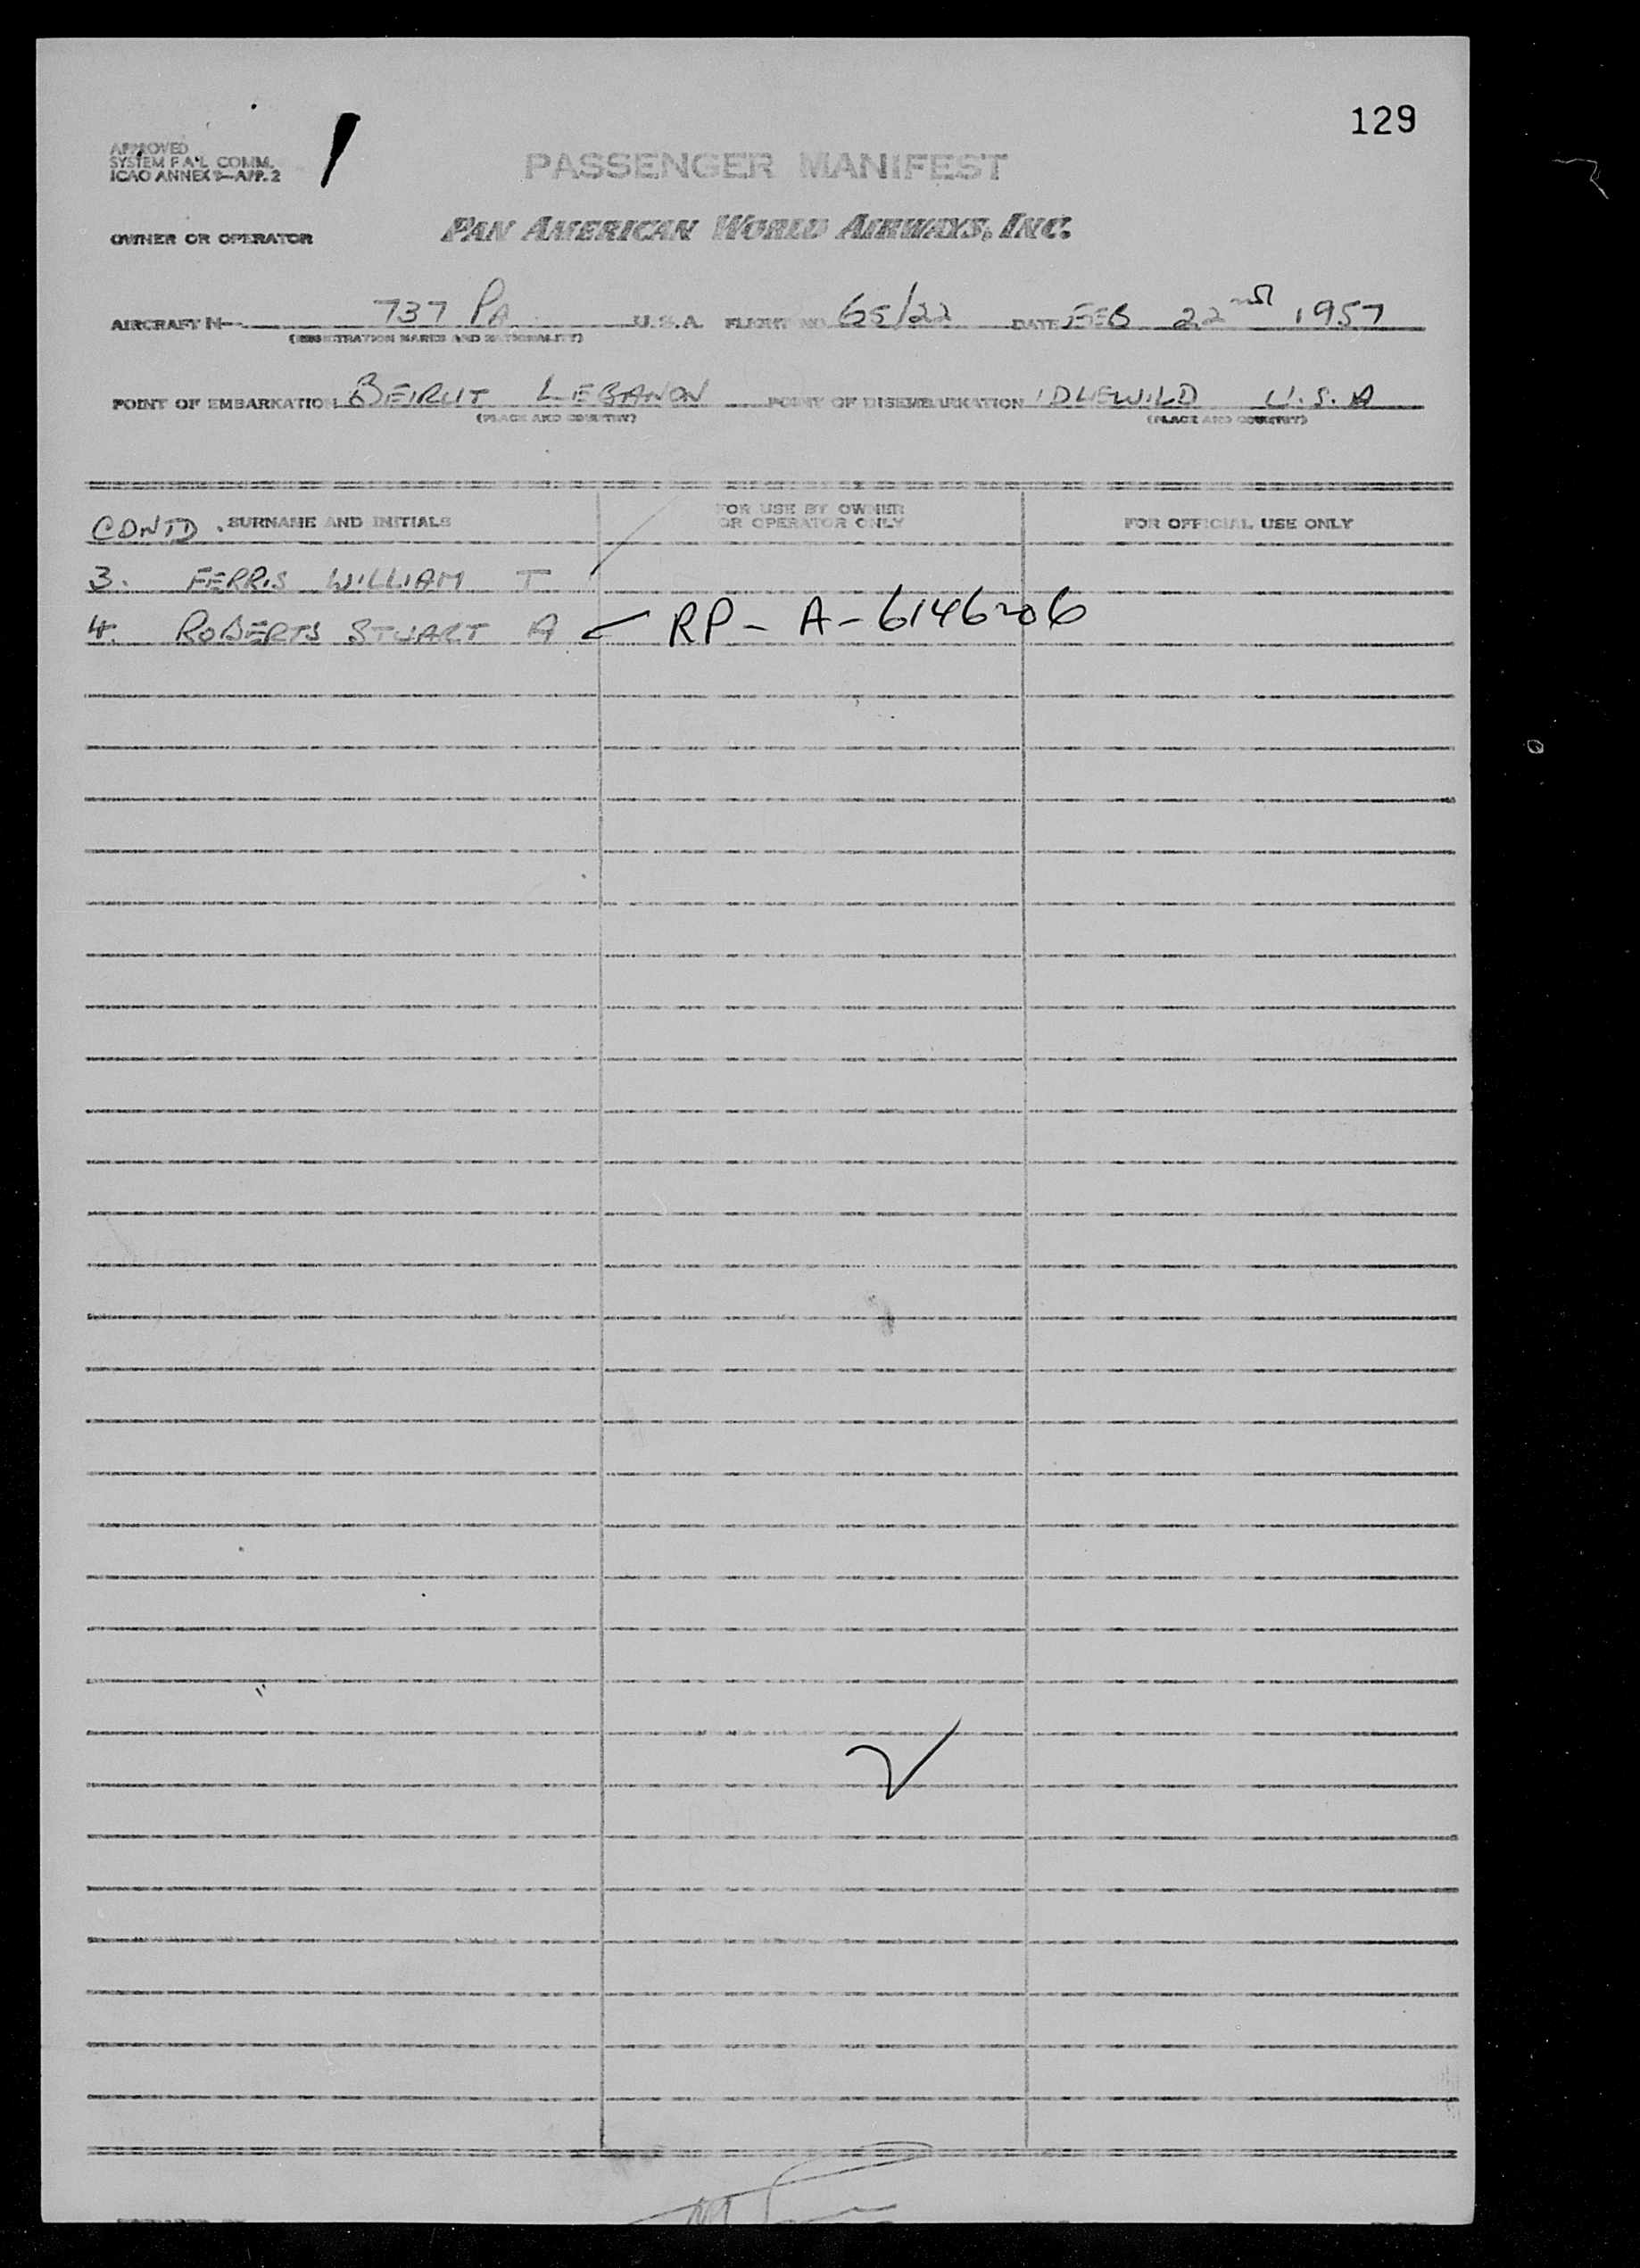 129
APPROVED
SYSTEM F.A.L. COMM.
ICAO ANNEX 9—APP. 2
PASSENGER MANIFEST
OWNER OR OPERATOR PAN AMERICAN WORLD AIRWAYS, INC.
AIRCRAFT N— 737 PA U.S.A. FLIGHT NO. 65/22 DATE FEB 22nd 1957
(REGISTRATION MARKS AND NATIONALITY)
POINT OF EMBARKATION BEIRUT LEBANON POINT OF DISEMBARKATION IDLEWILD U.S.A
(PLACE AND COUNTRY) (PLACE AND COUNTRY)
CONTD. SURNAME AND INITIALS FOR USE BY OWNER OR OPERATOR ONLY FOR OFFICIAL USE ONLY
3. FERRIS WILLIAM T
4. ROBERTS STUART A RP - A - 6146206